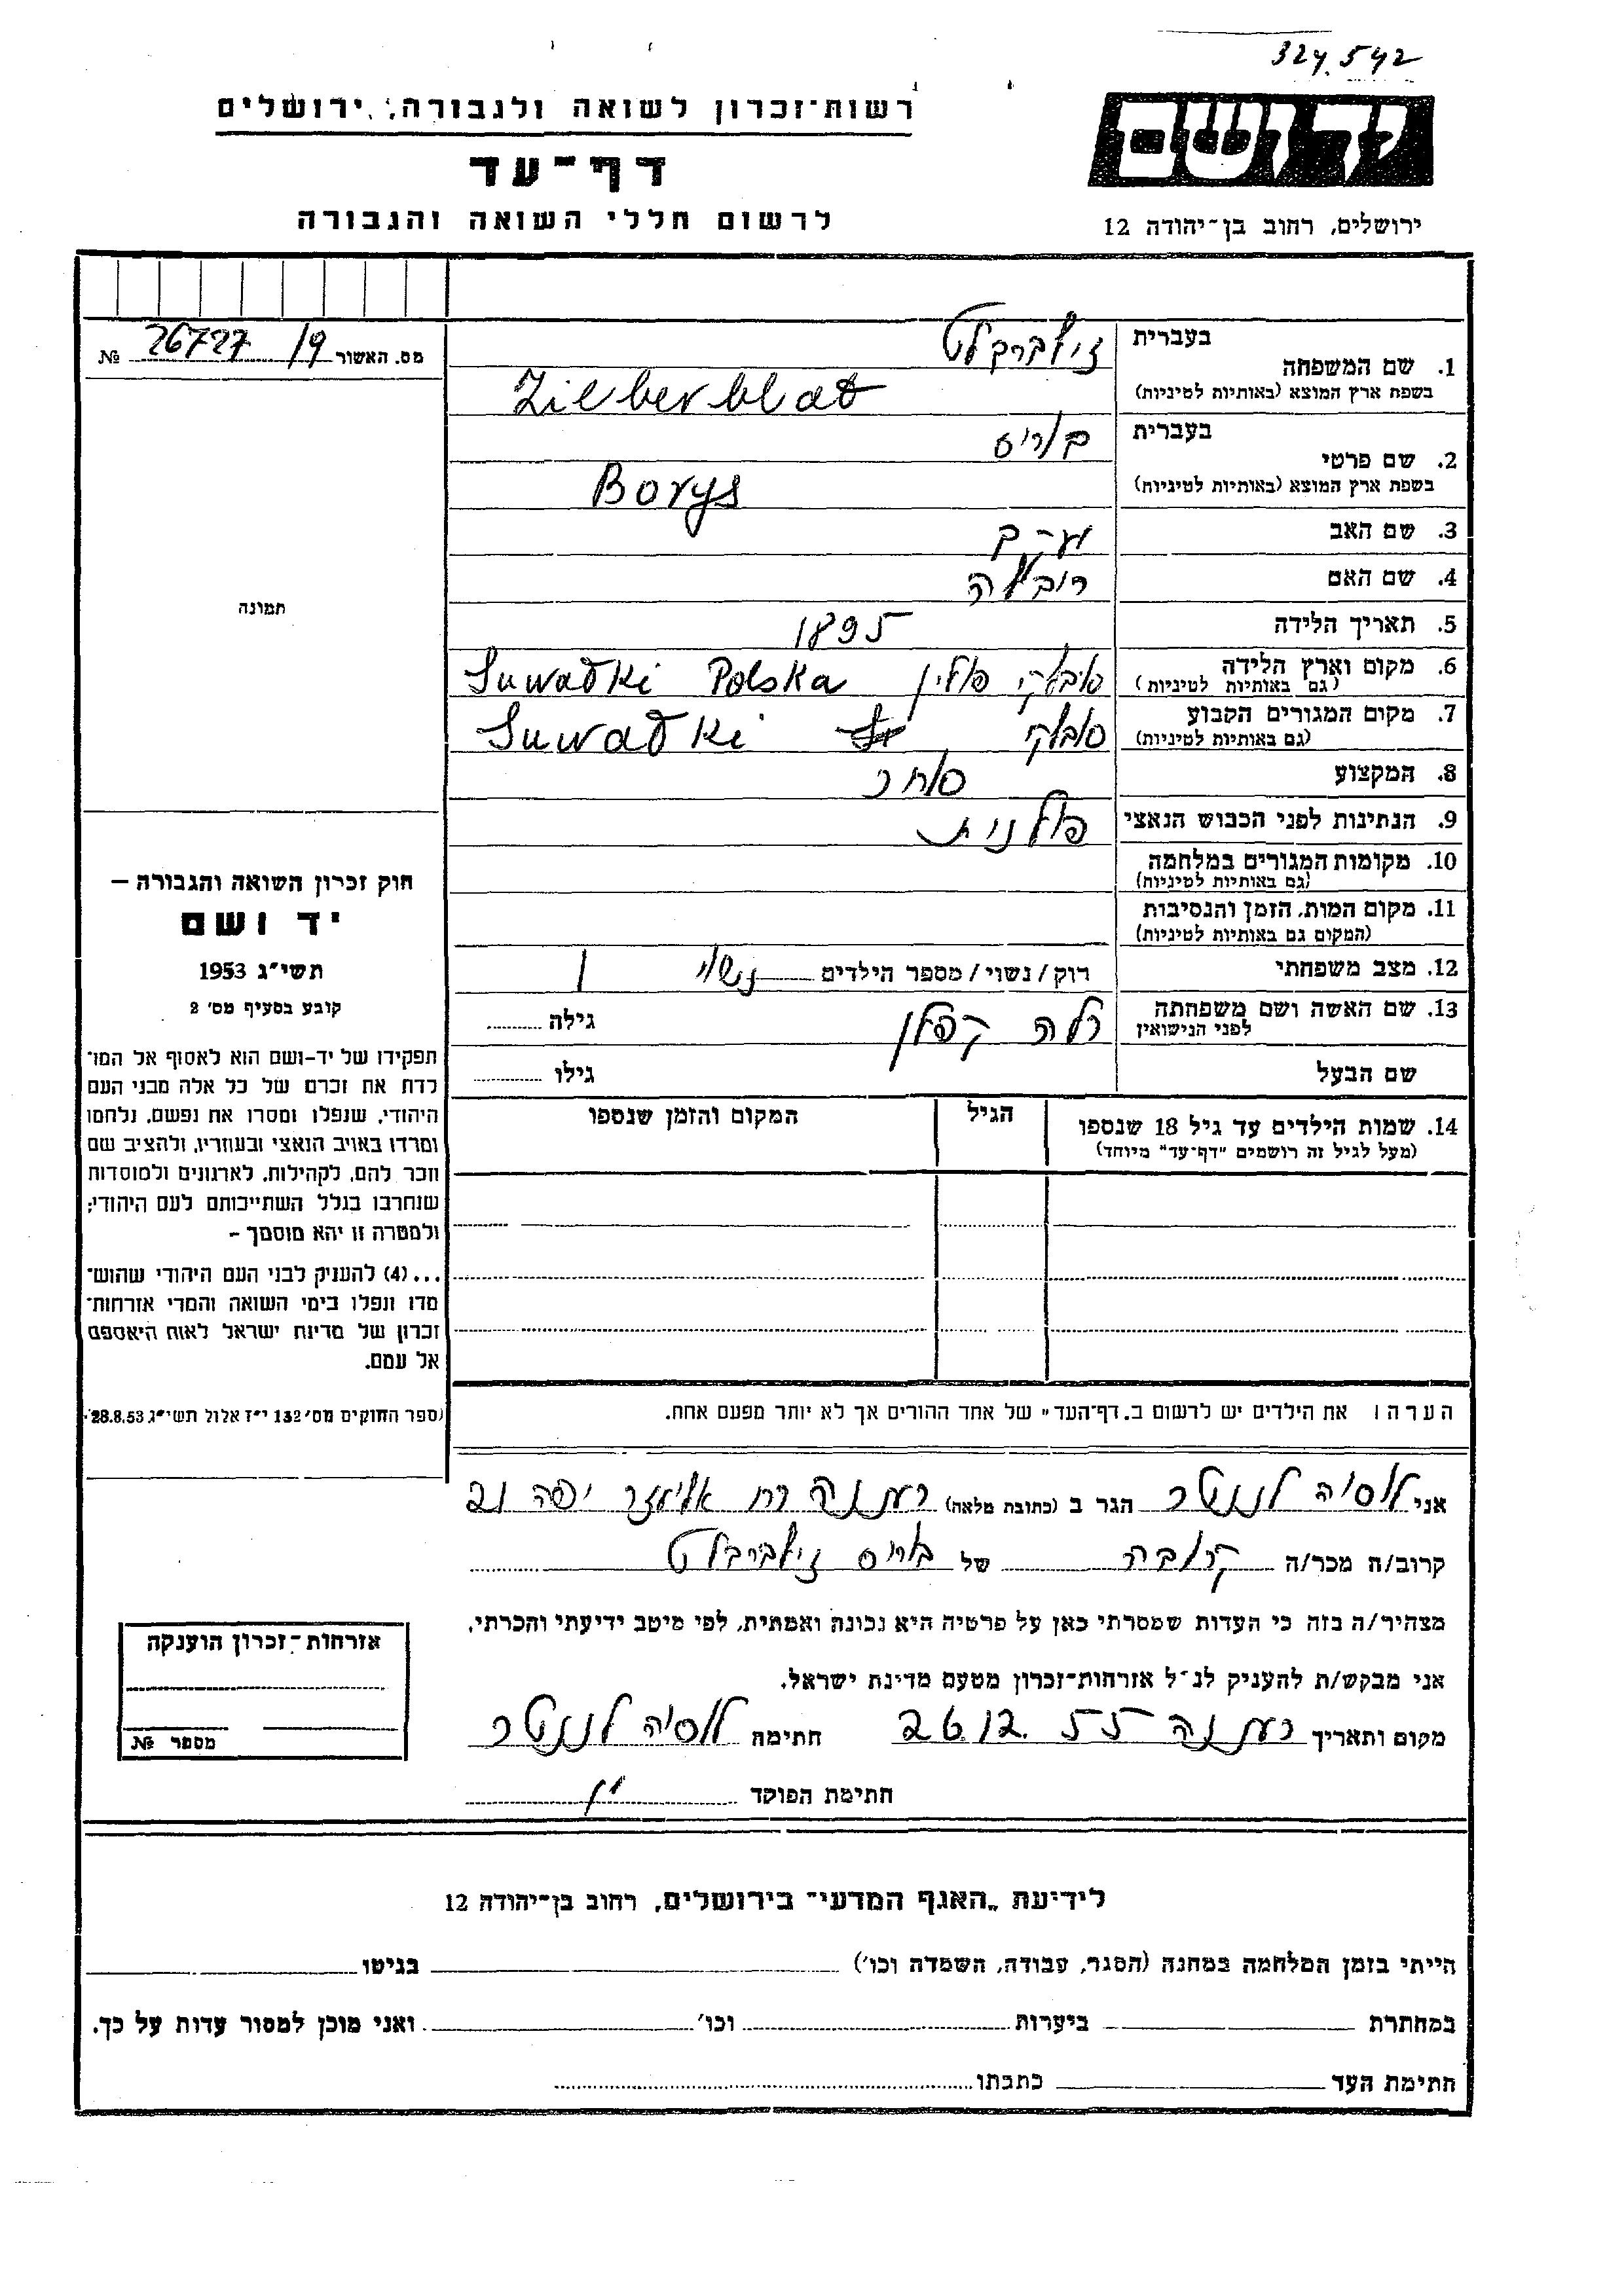 324.542
רשות־זכרון לשואה ולגבורה, ירושלים
דף־עד
לרשום חללי השואה והגבורה
ידושם
ירושלים, רחוב בן־יהודה 12
מס. האשור 26727/9 №
תמונה
בעברית
1. שם המשפחה זילברבלט
בשפת ארץ המוצא (באותיות לטיניות) Zilberblat
בעברית
2. שם פרטי בוריס
בשפת ארץ המוצא (באותיות לטיניות) Borys
3. שם האב יעקב
4. שם האם
5. תאריך הלידה 1895
6. מקום וארץ הלידה סובלקי פולין Suwałki Polska
(גם באותיות לטיניות)
7. מקום המגורים הקבוע סובלקי Suwałki
(גם באותיות לטיניות)
8. המקצוע סוחר
9. הנתינות לפני הכבוש הנאצי פולנית
10. מקומות המגורים במלחמה
(גם באותיות לטיניות)
11. מקום המות, הזמן והנסיבות
(המקום גם באותיות לטיניות)
12. מצב משפחתי רוק/נשוי/מספר הילדים נשוי 1
13. שם האשה ושם משפחתה
לפני הנישואין קפלן גילה
שם הבעל גילו
14. שמות הילדים עד גיל 18 שנספו הגיל המקום והזמן שנספו
(מעל לגיל זה רושמים "דף־עד" מיוחד)
הערה: את הילדים יש לרשום ב„דף־העד" של אחד ההורים אך לא יותר מפעם אחת.
חוק זכרון השואה והגבורה –
יד ושם
תשי"ג 1953
קובע בסעיף מס' 2
תפקידו של יד־ושם הוא לאסוף אל המו־
לדת את זכרם של כל אלה מבני העם
היהודי, שנפלו ומסרו את נפשם, נלחמו
ומרדו באויב הנאצי ובעוזריו, ולהציב שם
וזכר להם, לקהילות, לארגונים ולמוסדות
שנחרבו בגלל השתייכותם לעם היהודי;
ולמטרה זו יהא מוסמך –
...(4) להעניק לבני העם היהודי שהוש־
מדו ונפלו בימי השואה והמרי אזרחות־
זכרון של מדינת ישראל לאות היאספם
אל עמם.
(ספר החוקים מס' 132 י"ז אלול תשי"ג 28.8.53)
אני הגר ב (כתובת מלאה) רעננה
קרוב/ה מכר/ה קרובה של בוריס זילברבלט
מצהיר/ה בזה כי העדות שמסרתי כאן על פרטיה היא נכונה ואמתית, לפי מיטב ידיעתי והכרתי.
אני מבקש/ת להעניק לנ"ל אזרחות־זכרון מטעם מדינת ישראל.
מקום ותאריך רעננה 26.12.55 חתימה
חתימת הפוקד
אזרחות־זכרון הוענקה
מספר №
לידיעת „האגף המדעי" בירושלים, רחוב בן־יהודה 12
הייתי בזמן המלחמה במחנה (הסגר, עבודה, השמדה וכו') בגיטו
במחתרת ביערות וכו' ואני מוכן למסור עדות על כך.
חתימת העד כתבתו